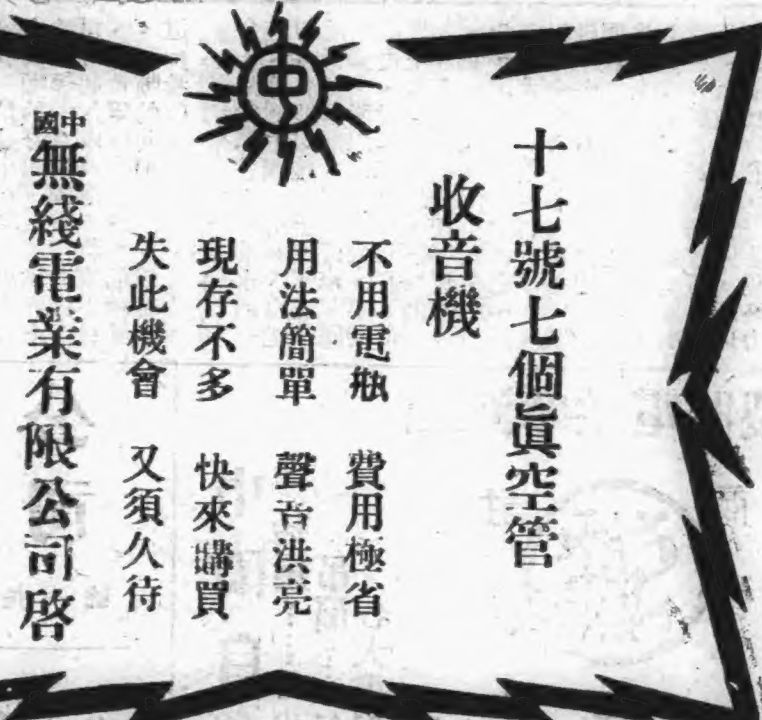 十七號七個眞空管
收音機
不用電瓶 費用極省
用法簡單 聲音洪亮
現存不多 快來購買
失此機會 又須久待
中
中國無綫電業有限公司啓